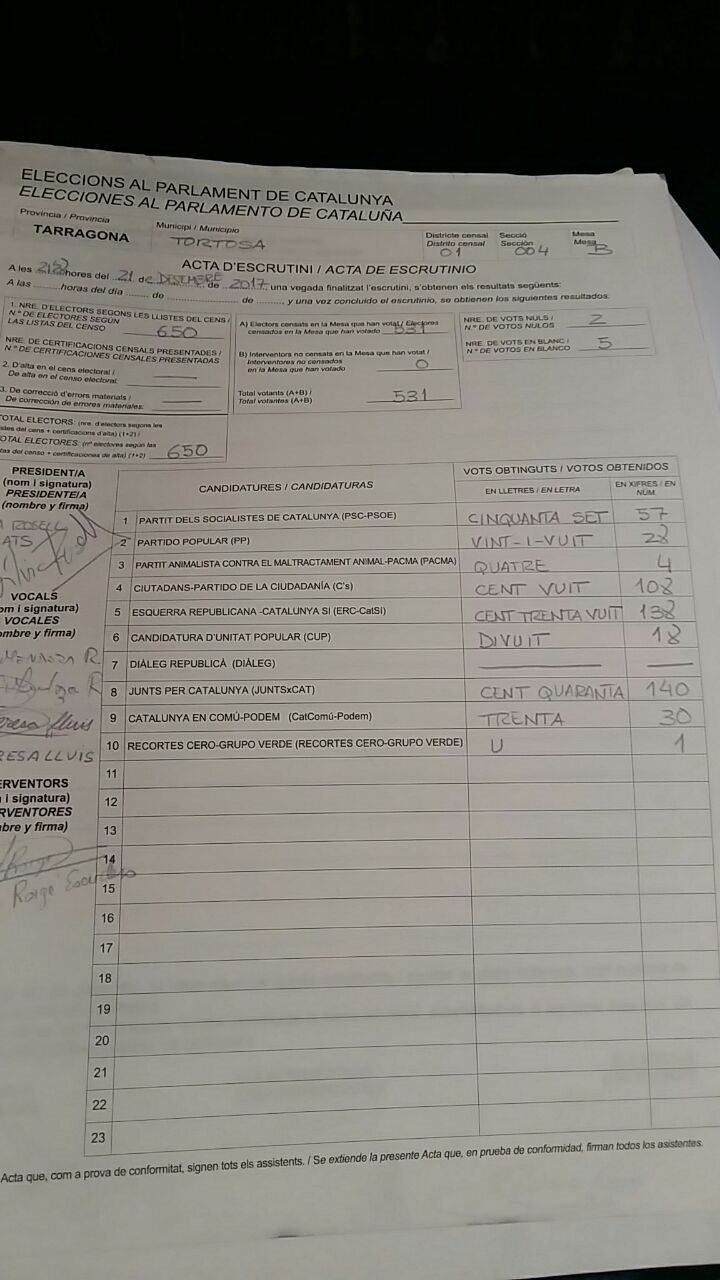 ELECCIONS AL PARLAMENT DE CATALUNYA
ELECCIONES AL PARLAMENTO DE CATALUÑA
Província / Provincia
TARRAGONA
Municipi / Municipio
TORTOSA
Districte censal
Distrito censal
01
Secció
Sección
004
Mesa
Mesa
B
ACTA D'ESCRUTINI / ACTA DE ESCRUTINIO
A les hores del 21 de DISEMBRE de 2017, una vegada finalitzat l'escrutini, s'obtenen els resultats següents:
A las ........horas del día ........ de ........................ de ........, y una vez concluido el escrutinio, se obtienen los siguientes resultados:
1. NRE. D'ELECTORS SEGONS LES LLISTES DEL CENS /
N.º DE ELECTORES SEGÚN
LAS LISTAS DEL CENSO 650
NRE. DE CERTIFICACIONS CENSALS PRESENTADES /
N.º DE CERTIFICACIONES CENSALES PRESENTADAS
2. D'alta en el cens electoral /
De alta en el censo electoral:
3. De correcció d'errors materials /
De corrección de errores materiales:
TOTAL ELECTORS: (nre. d'electors segons les
llistes del cens + certificacions d'alta) (1+2) /
TOTAL ELECTORES: (nº electores según las
listas del censo + certificaciones de alta) (1+2) 650
A) Electors censats en la Mesa que han votat / Electores
censados en la Mesa que han votado 531
B) Interventors no censats en la Mesa que han votat /
Interventores no censados
en la Mesa que han votado 0
Total votants (A+B) /
Total votantes (A+B) 531
NRE. DE VOTS NULS /
N.º DE VOTOS NULOS 2
NRE. DE VOTS EN BLANC /
N.º DE VOTOS EN BLANCO 5
PRESIDENT/A
(nom i signatura)
PRESIDENTE/A
(nombre y firma)
ROSELL
ATS
VOCALS
(nom i signatura)
VOCALES
(nombre y firma)
MENDOZA R.
Teresa Lluis
TERESA LLUIS
INTERVENTORS
(nom i signatura)
INTERVENTORES
(nombre y firma)
CANDIDATURES / CANDIDATURAS
VOTS OBTINGUTS / VOTOS OBTENIDOS
EN LLETRES / EN LETRA
EN XIFRES / EN NÚM.
1 PARTIT DELS SOCIALISTES DE CATALUNYA (PSC-PSOE) CINQUANTA SET 57
2 PARTIDO POPULAR (PP) VINT-I-VUIT 28
3 PARTIT ANIMALISTA CONTRA EL MALTRACTAMENT ANIMAL-PACMA (PACMA) QUATRE 4
4 CIUTADANS-PARTIDO DE LA CIUDADANÍA (C's) CENT VUIT 108
5 ESQUERRA REPUBLICANA -CATALUNYA SÍ (ERC-CatSí) CENT TRENTA VUIT 138
6 CANDIDATURA D'UNITAT POPULAR (CUP) DIVUIT 18
7 DIÀLEG REPUBLICÀ (DIÀLEG)
8 JUNTS PER CATALUNYA (JUNTSxCAT) CENT QUARANTA 140
9 CATALUNYA EN COMÚ-PODEM (CatComú-Podem) TRENTA 30
10 RECORTES CERO-GRUPO VERDE (RECORTES CERO-GRUPO VERDE) U 1
11
12
13
14
15
16
17
18
19
20
21
22
23
Acta que, com a prova de conformitat, signen tots els assistents. / Se extiende la presente Acta que, en prueba de conformidad, firman todos los asistentes.